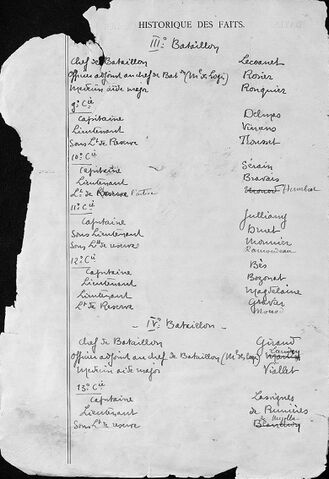 HISTORIQUE DES FAITS.
III° Bataillon
Chef de Bataillon Lecoanet
Officier adjoint au chef de Bat° (Mr de Logis) Rosier
Médecin aide major Ronquier
9° Cie
Capitaine Delmas
Lieutenant
Sous Lt de Réserve
10° Cie
Capitaine Serain
Lieutenant Bravais
Lt de Réserve Humbert
11° Cie
Capitaine Julliany
Sous Lieutenant Druet
Sous Lt de réserve Monnier
12° Cie
Capitaine Bès
Lieutenant Bozonat
Lieutenant Magdelaine
Lt de Réserve
Monod
- IV° Bataillon -
Chef de Bataillon Giraud
Officier adjoint au chef de Bataillon (Mr de Logis)
Médecin aide major Viallet
13° Cie
Capitaine Lassignes
Lieutenant de
Sous Lt de réserve